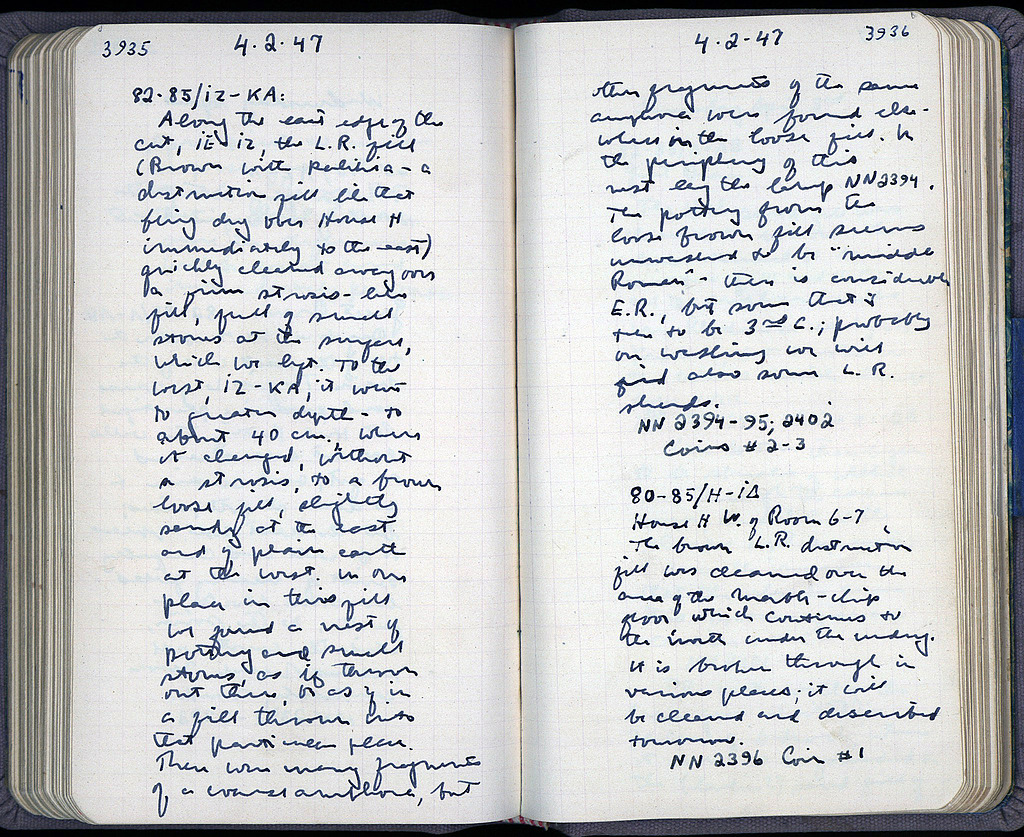 3935
4·2·47
82-85/ΙΖ-ΚΑ:
Along the east edge of the
cut, ΙΕ ΙΖ, the L.R. fill
(Brown with - a
destruction fill like that
being dug over House H
immediately to the east)
quickly cleared away over
a firm strosis-like
fill, full of small
stones at the surface,
which we left. To the
west, ΙΖ-ΚΑ, it went
to greater depth - to
about 40 cm., where
it changed, without
a strosis, to a brown
loose fill, slightly
sandy at the east
and of plain earth
at the west. In one
place in this fill
we found a nest of
pottery and small
stones, as if thrown
out there, or as if in
a fill thrown into
that particular place.
There were many fragments
of a coarse amphora, but
4·2-47
3936
other fragments of the same
amphora were found else-
where in the loose fill. In
the periphery of this
nest lay the lamp NN2394.
The pottery from the
loose brown fill seems
unwashed to be "middle
Roman" - there is considerable
E.R., but some that
seem to be 3rd C.; probably
on washing we will
find also some L.R.
sherds.
NN 2394-95; 2402
Coins #2-3
80-85/Η-ΙΔ
House H W. of Room 6-7,
The brown L.R. destruction
fill was cleaned over the
area of the marble-chip
floor which continues to
the north under the
It is broken through in
various places; it will
be cleaned and described
tomorrow.
NN 2396 Coin #1